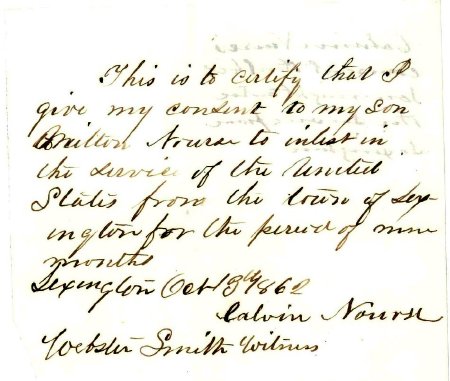 This is to certify that I
give my consent to my son
Britton Nourse to inlist in
the service of the United
States from the town of Lex-
ington for the period of nine
months
Lexington Oct 13th 1862
Calvin Nourse
Webster Smith Witness